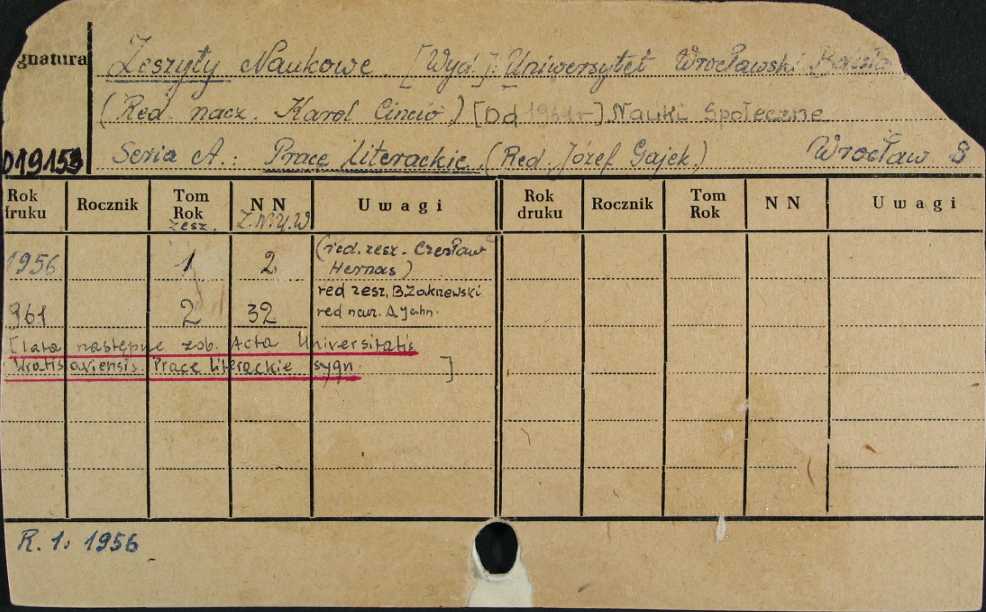 gnatura
Zeszyty Naukowe. [Wyd.]: Uniwersytet Wrocławski
(Red. nacz. Karol Cincio) [Od 1961 r] Nauki Społeczne
D19153 Seria A.: Prace Literackie. (Red. Józef Gajek.) Wrocław 8
Rok druku Rocznik Tom Rok zesz. N N Z.N.U.W Uwagi Rok druku Rocznik Tom Rok N N Uwagi
1956 1 2 (red. zesz. Czesław
Hernas)
961 2 32 red zesz. B. Zakrzewski
red nacz. A Jahn.
[lata następne zob. Acta Universitatis
Wratislaviensis. Prace literackie sygn ]
R. 1: 1956